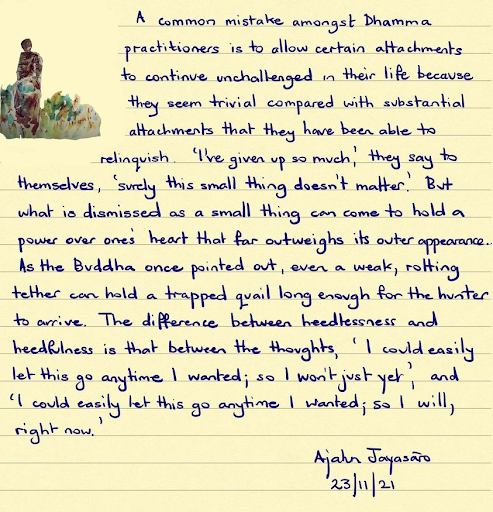 A common mistake amongst Dhamma
practitioners is to allow certain attachments
to continue unchallenged in their life because
they seem trivial compared with substantial
attachments that they have been able to
relinquish. 'I've given up so much,' they say to
themselves, 'surely this small thing doesn't matter.' But
what is dismissed as a small thing can come to hold a
power over one's heart that far outweighs its outer appearance.
As the Buddha once pointed out, even a weak, rotting
tether can hold a trapped quail long enough for the hunter
to arrive. The difference between heedlessness and
heedfulness is that between the thoughts, 'I could easily
let this go anytime I wanted; so I won't just yet', and
'I could easily let this go anytime I wanted; so I will,
right now.'
Ajahn Jayasāro
23/11/21